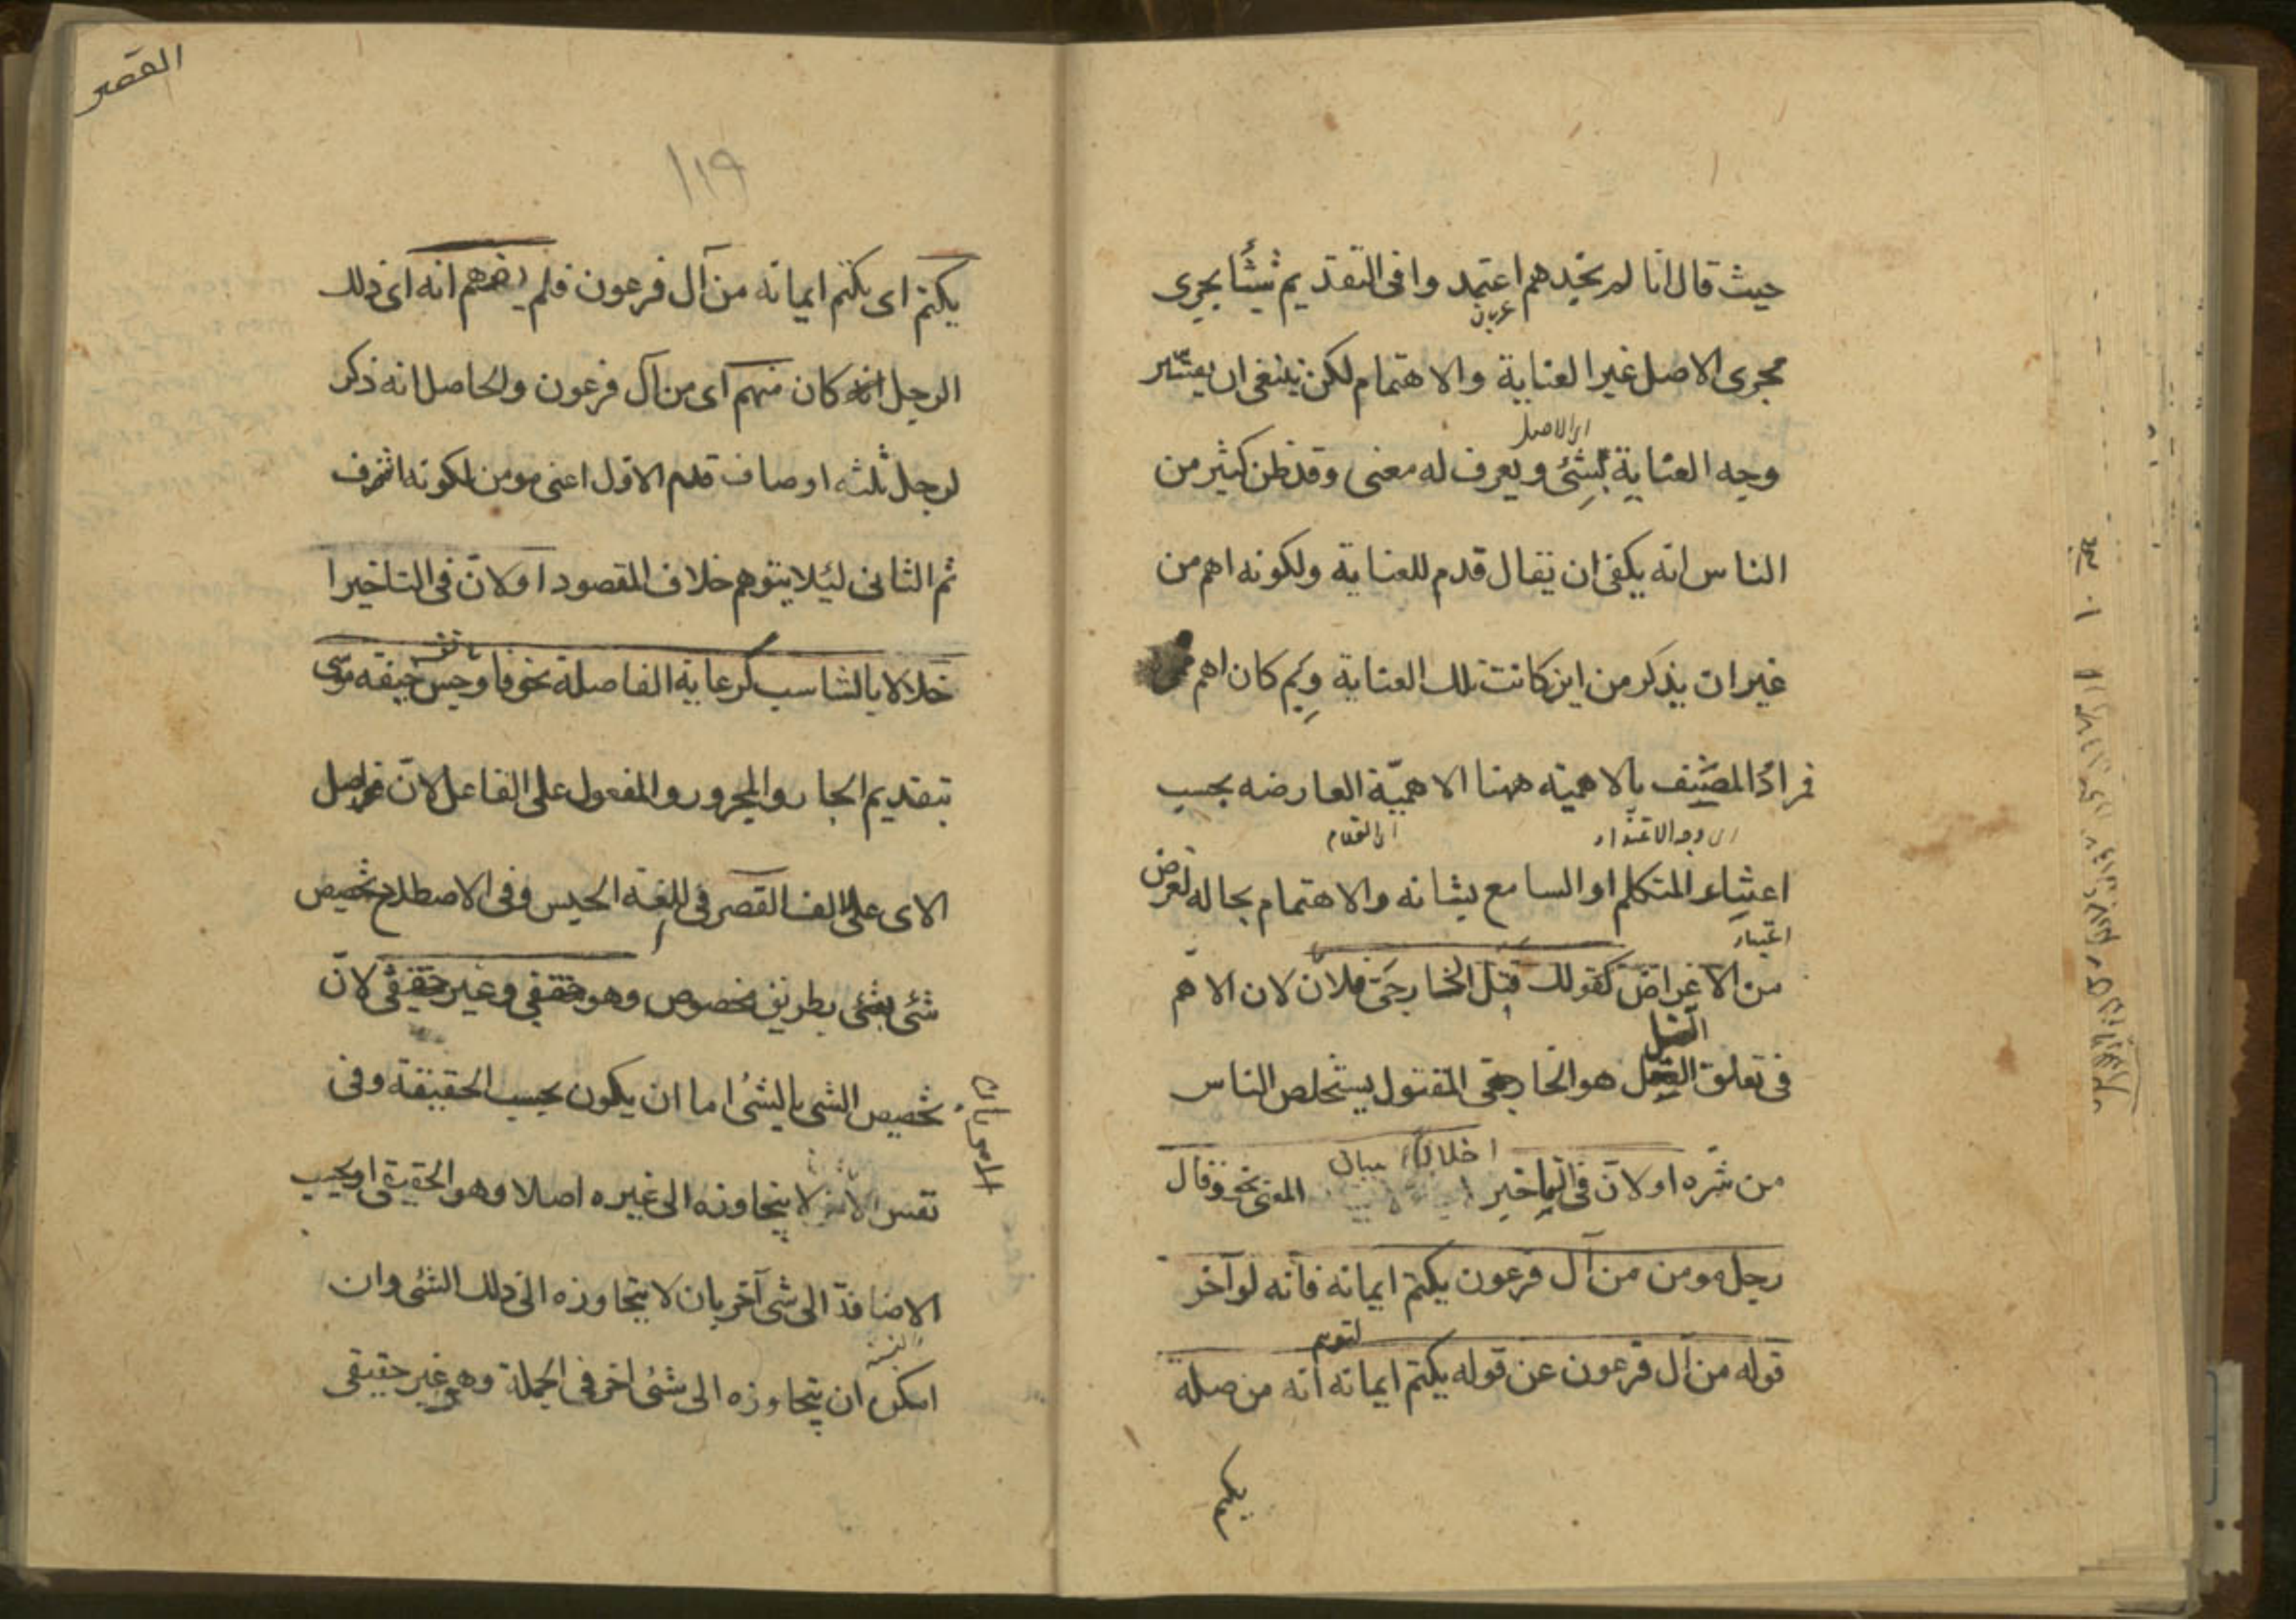 حيث قال انا لم نجدهم اعتمدوا فى التقديم شيئا يجرى
مجرى الاصل غير العناية والاهتمام لكن ينبغى ان يفسّر
اى الاصل
وجه العناية بشئ ويعرف له معنى وقد ظن كثير من
الناس انه يكفى ان يقال قدم للعناية ولكونه اهم من
غير ان يذكر من اين كانت تلك العناية وبِمَ كان اهم
فمرادُ المصنِّف بالاهمية ههنا الاهميّة العارضه بحسب
اعتناء المتكلم او السامع بشانه والاهتمام بحاله لغرض
من الاغراض كقولك قتل الخارجىّ فلان لان الاهم
القتل
فى تعلق هو الخارجى المقتول ليتخلص الناس
اخلالا ببيان
من شرّه او لانّ فى التاخير المعنى نحو وقال
رجل مومن من آل فرعون يكتم ايمانه فانه لو آخر
لتوهم
قوله من آل فرعون عن قوله يكتم ايمانه انه من صلة
يكتم
القصر
١١٩
يكتم اى يكتم ايمانه من آل فرعون فلم يفهم انه اى ذلك
الرجل كان منهم اى من آل فرعون والحاصل انه ذكر
لرجل ثلثه اوصاف قدم الاوّل اعنى مومن لكونه اشرف
ثم الثانى ليئلا يتوهم خلاف المقصود او لانّ فى التاخير ا
خلالا بالتناسب كرعاية الفاصلة نحو فاوجس خيفة موسى
بتقديم الجار والمجرور والمفعول على الفاعل لانّ فواصل
الاى على الالف القصر فى اللغة الحبس وفى الاصطلاح تخصيص
شئ بشئ بطريق مخصوص وهو حقيقى وغير حقيقى لانّ
تخصيص الشى بالشئ اما ان يكون بحسب الحقيقة وفى
نفس الامر لا يتجاوزه الى غيره اصلا وهو الحقيقى او بحسب
الاضافة الى شى آخر بان لا يتجاوزه الى ذلك الشئ وان
امكن ان يتجاوزه الى شئ اخر فى الجملة وهو غير حقيقى